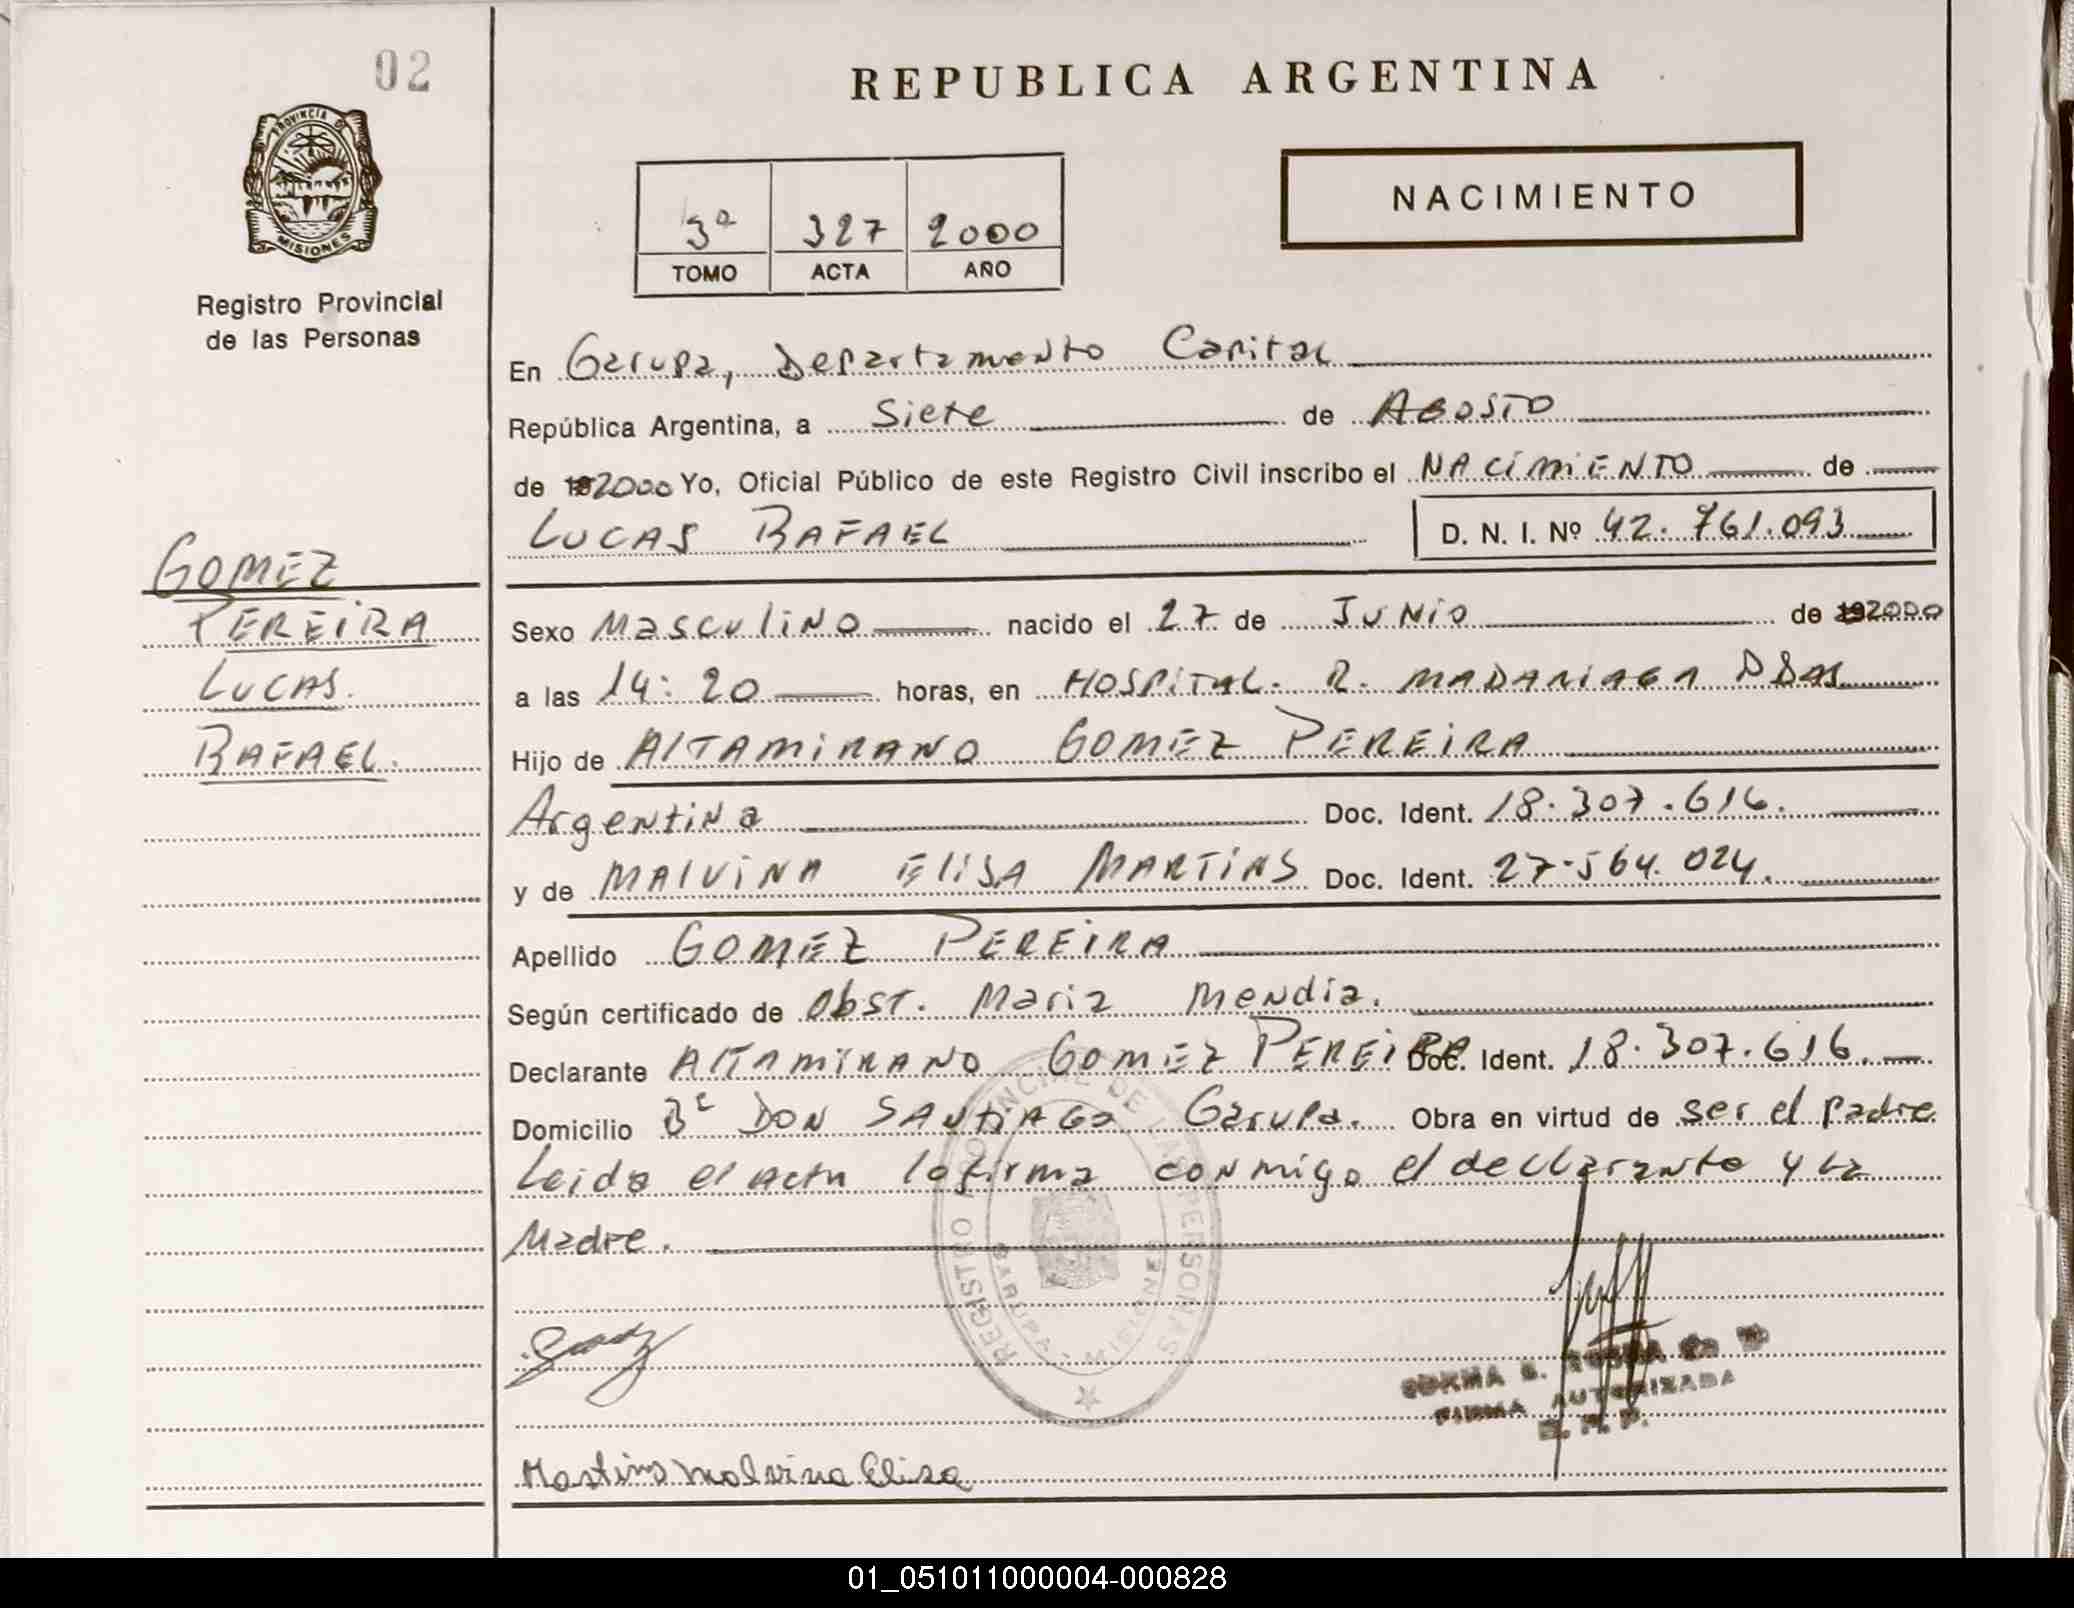 02
PROVINCIA DE
MISIONES
Registro Provincial
de las Personas
REPUBLICA ARGENTINA
NACIMIENTO
3º 327 2000
TOMO ACTA AÑO
En Garupa, Departamento Capital
República Argentina, a Siete de Agosto
de 2000 Yo, Oficial Público de este Registro Civil inscribo el NACIMIENTO de
LUCAS RAFAEL D. N. I. Nº 42.761.093
GOMEZ
PEREIRA
LUCAS.
RAFAEL.
Sexo Masculino nacido el 27 de JUNIO de 2000
a las 14:20 horas, en HOSPITAL. R. MADARIAGA
Hijo de AlTAMIRANO GOMEZ PEREIRA
Argentina Doc. Ident. 18.307.616.
y de MAlViNA EliSA MARTiNS Doc. Ident. 27.564.024.
Apellido GOMEZ PEREIRA
Según certificado de Obst. Maria Mendia.
Declarante AlTAMIRANO GOMEZ PEREIRA Doc. Ident. 18.307.616.
Domicilio Bº DON SANTIAGO Garupa. Obra en virtud de ser el padre
Leida el acta la firma conmigo el declarante y la
Madre.
REGISTRO PROVINCIAL DE LAS PERSONAS
GARUPA - MISIONES
FIRMA AUTORIZADA
Martins Malvina Elisa
01_051011000004-000828